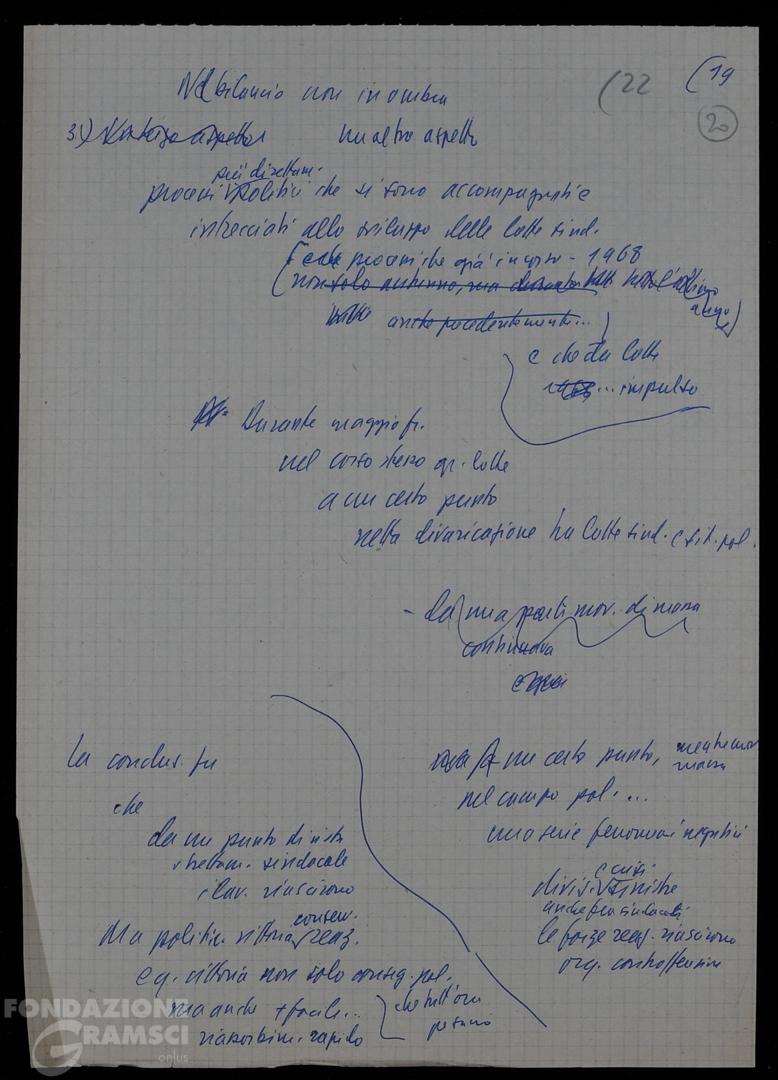 (22 (19
20
Nel bilancio non in ombra
3) Un terzo aspetto un altro aspetto
più direttam.
processi politici che si sono accompagnati e
intrecciati allo sviluppo delle lotte sind.
processi che già in corso - 1968
(non solo autunno, ma durante
anche precedentemente...)
e che da lotte
1968 ... impulso
Durante maggio fr.
nel corso stesso gr. lotte
a un certo punto
netta divaricazione tra lotte sind. e sit. pol.
- da una parte mov. di massa
continuava
la conclus. fu
che
da un punto di vista
strettam. sindacale
i lav. riuscirono
conserv.
Ma politic. vittoria reaz.
e q. vittoria non solo conseg. pol.
ma anche + facile...
riassorbim. rapido
che tutt'ora
pesano
a un certo punto, mentre mov.
massa
nel campo pol. ...
una serie fenomeni negativi
e crisi
divis. sinistre
anche fra sindacati
le forze reaz. riuscirono
org. controffensiva
FONDAZIONE
GRAMSCI
onlus